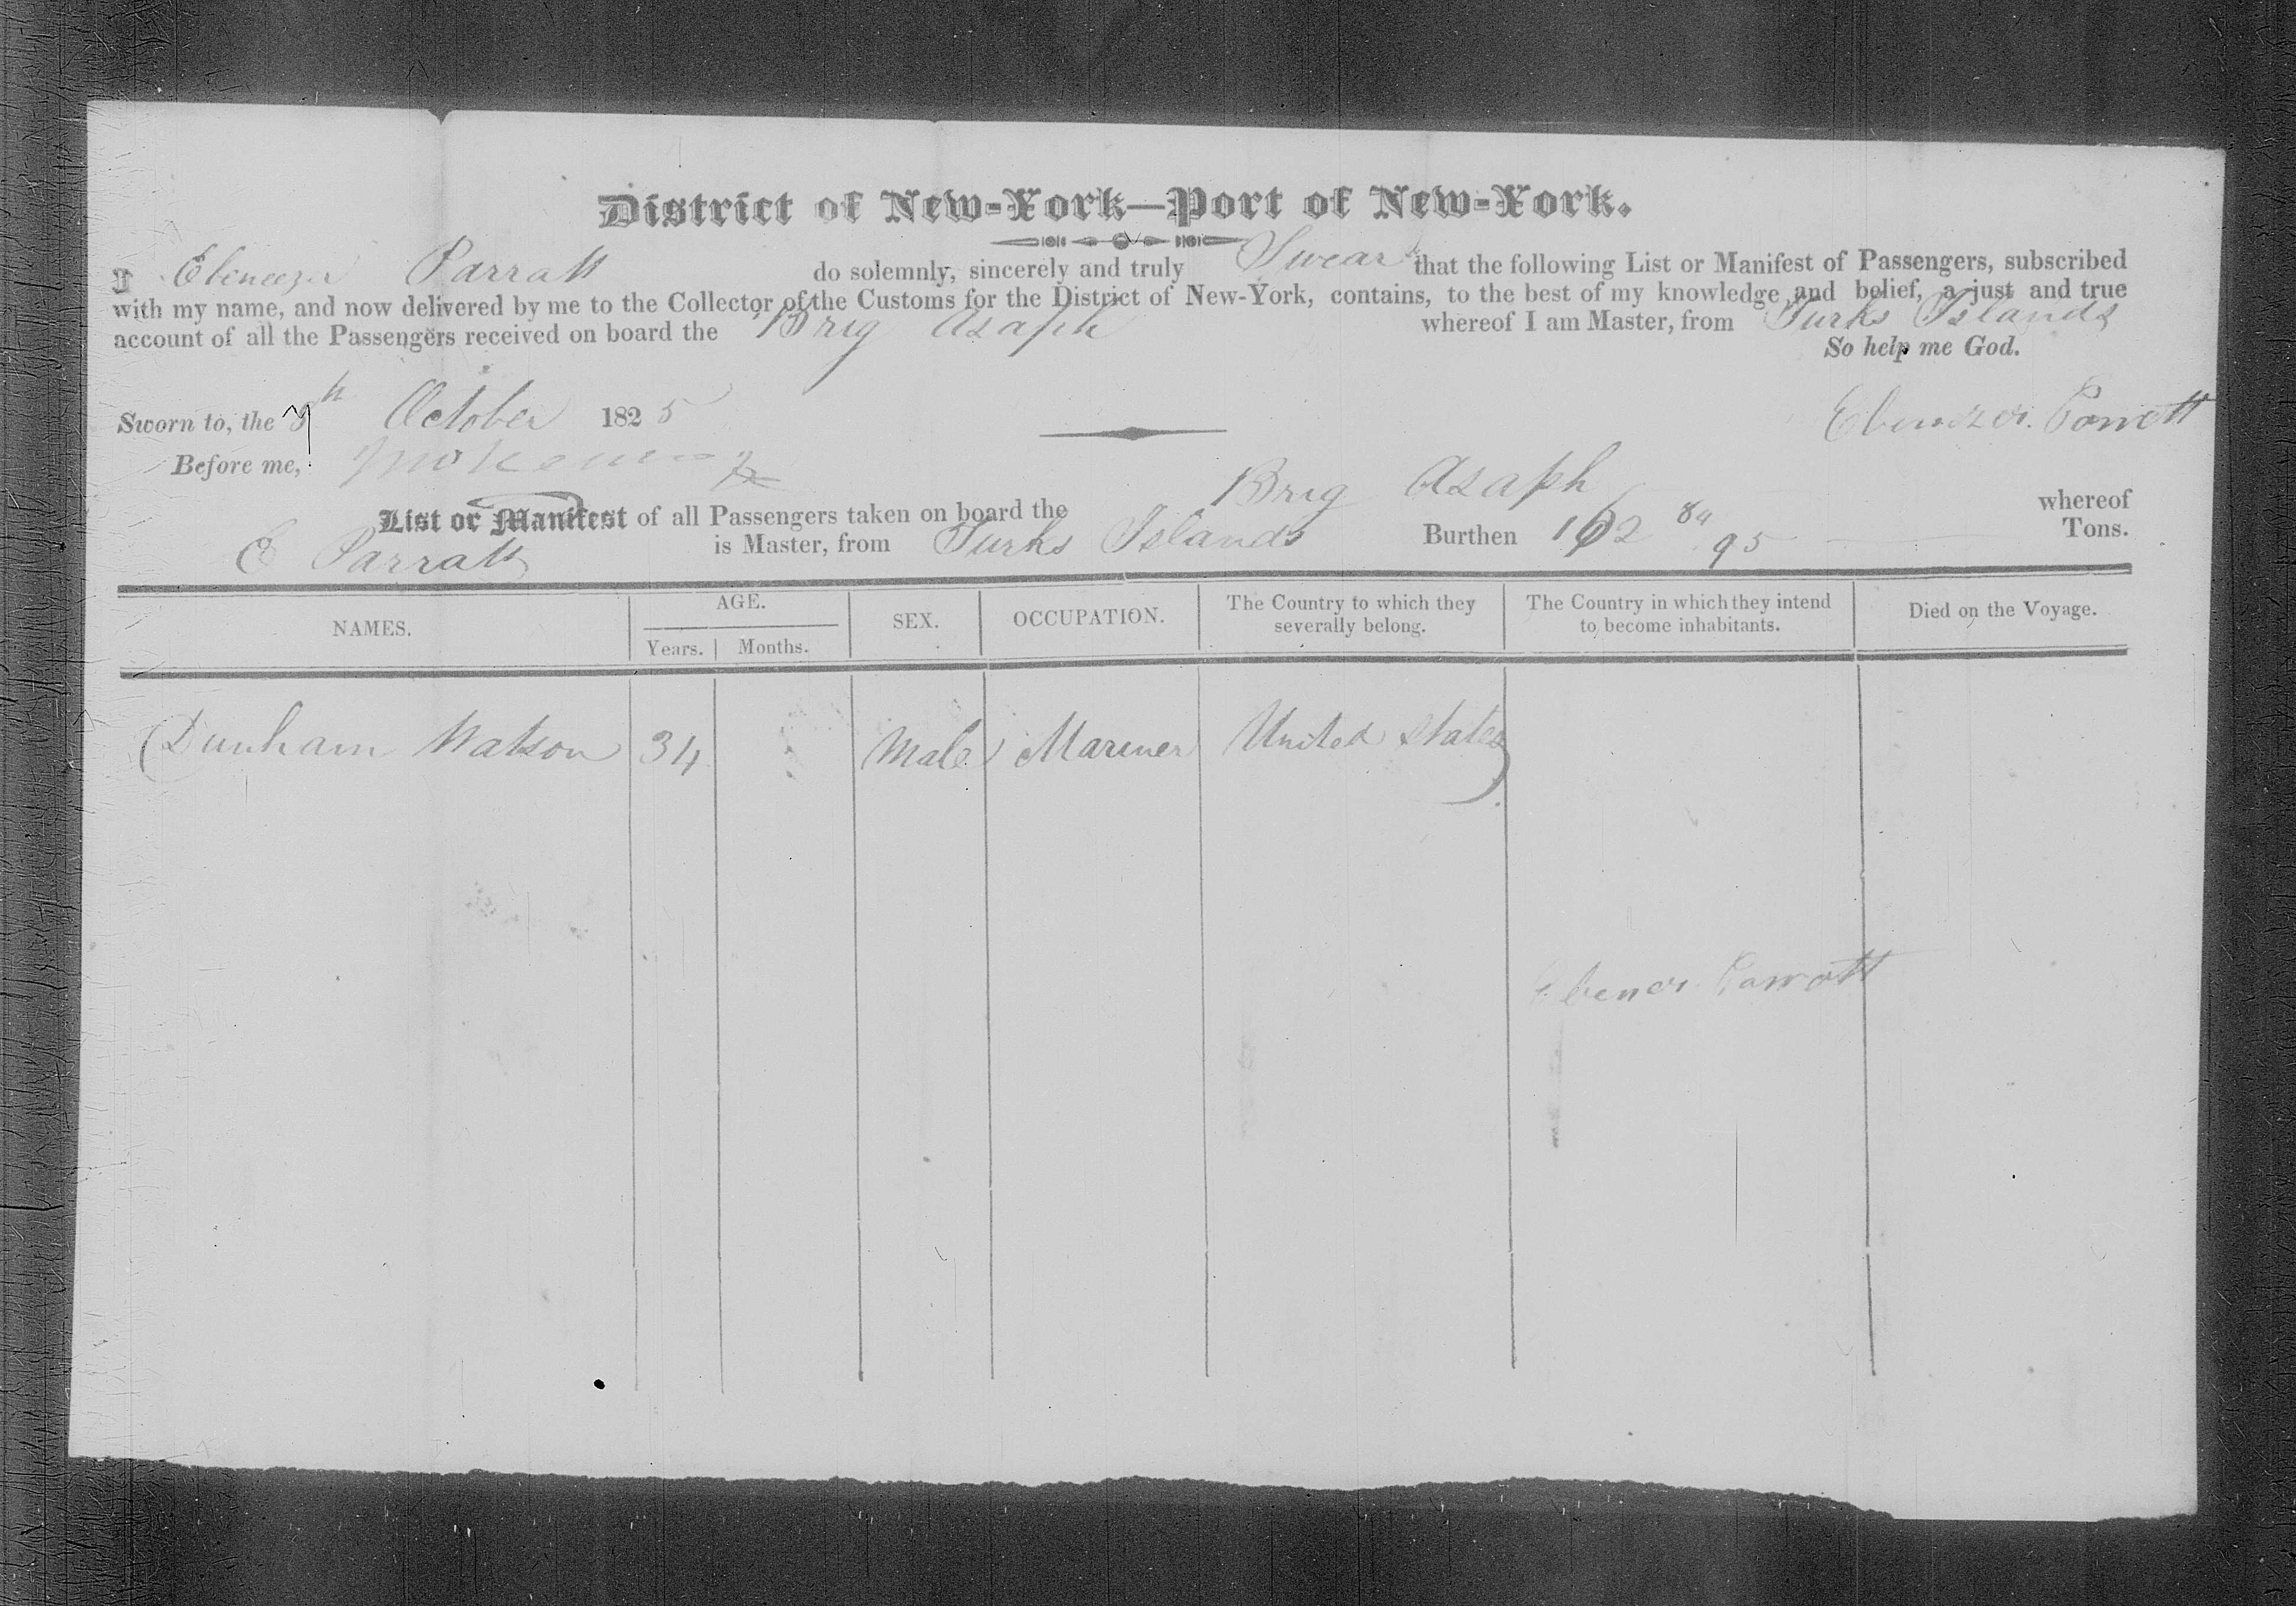 District of New-York—Port of New-York.
I Ebeneezer Parratt do solemnly, sincerely and truly Swear that the following List or Manifest of Passengers, subscribed
with my name, and now delivered by me to the Collector of the Customs for the District of New-York, contains, to the best of my knowledge and belief, a just and true
account of all the Passengers received on board the Brig Asaph whereof I am Master, from Turks Islands
So help me God.
Sworn to, the October 1825 Ebenezer Parrott
Before me,
List or Manifest of all Passengers taken on board the Brig Asaph whereof
E Parratt is Master, from Turks Islands Burthen 162 84 95 Tons.
NAMES. AGE. SEX. OCCUPATION. The Country to which they severally belong. The Country in which they intend to become inhabitants. Died on the Voyage.
Years. Months.
Dunham Watson 34 Male Mariner United States
Parrott